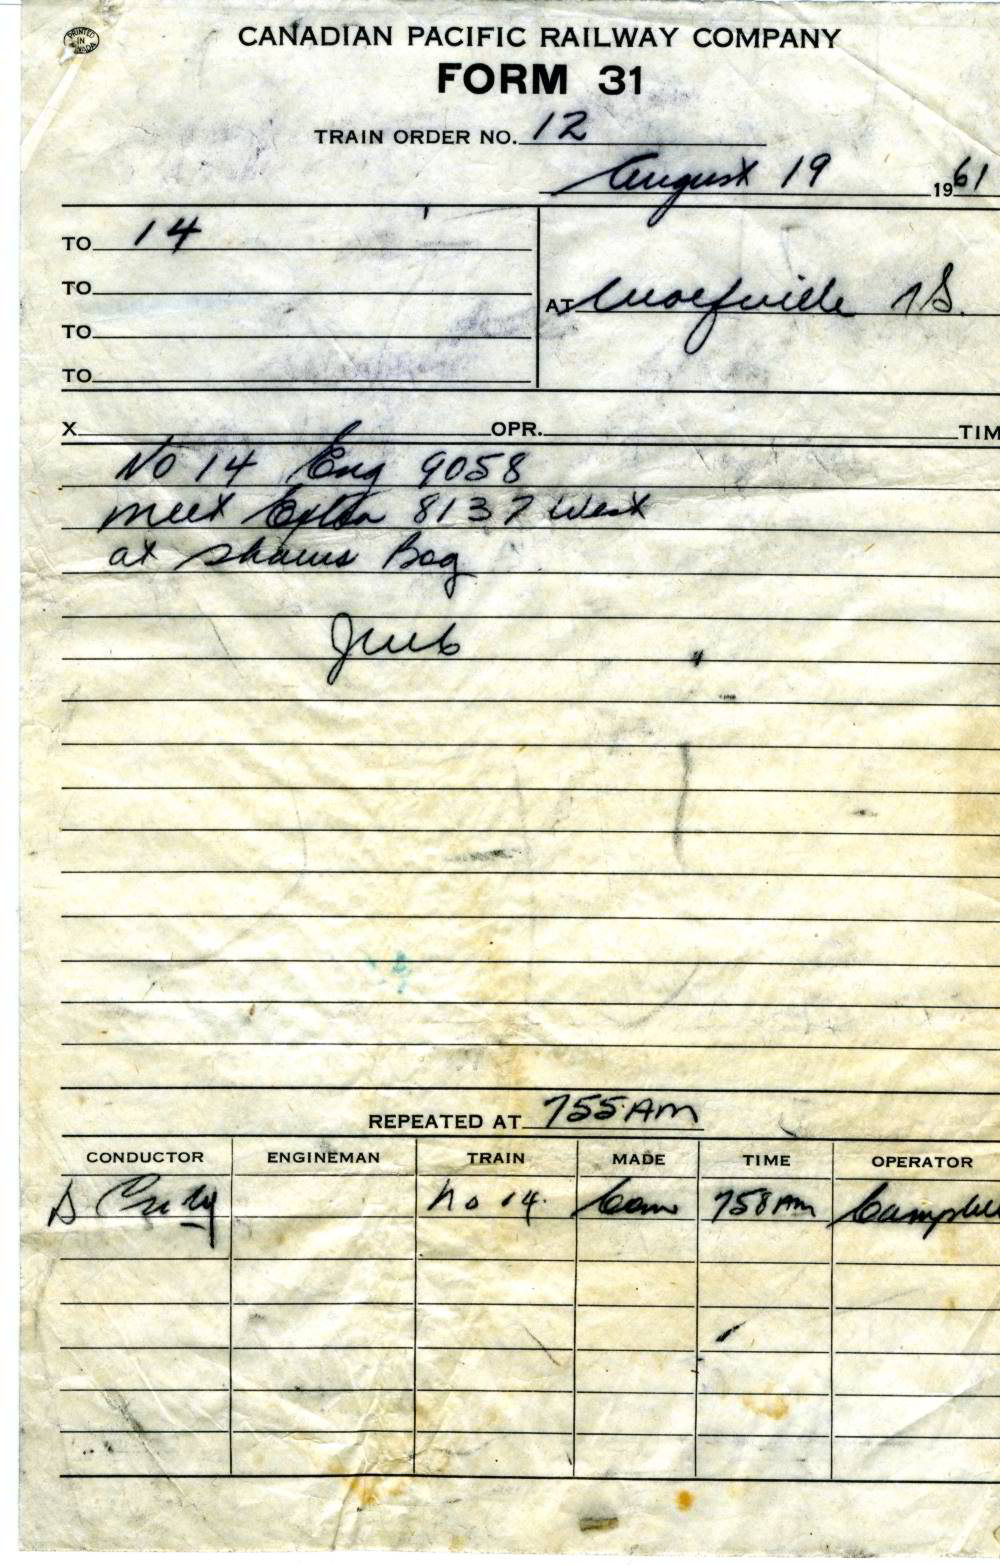 PRINTED IN CANADA
CANADIAN PACIFIC RAILWAY COMPANY
FORM 31
TRAIN ORDER NO. 12
August 19 1961
TO 14
TO
TO
TO
AT Wolfville NS.
X OPR. TIM
No 14 Eng 9058
meet Extra 8137 West
at Shaws Bog
REPEATED AT 755 AM
CONDUCTOR ENGINEMAN TRAIN MADE TIME OPERATOR
No 14. Com 758 AM Campbell